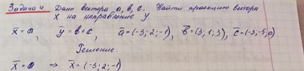 Задача 4. Дано вектора a, b, c. Найти проекцию вектора
x на направление y
x̄ = ā, ȳ = b̄ + c̄, ā = (-3; 2; -1), b̄ = (3; 1; 3), c̄ = (-3; -5; 0)
Решение
x̄ = ā ⇒ x̄ = (-3; 2; -1)